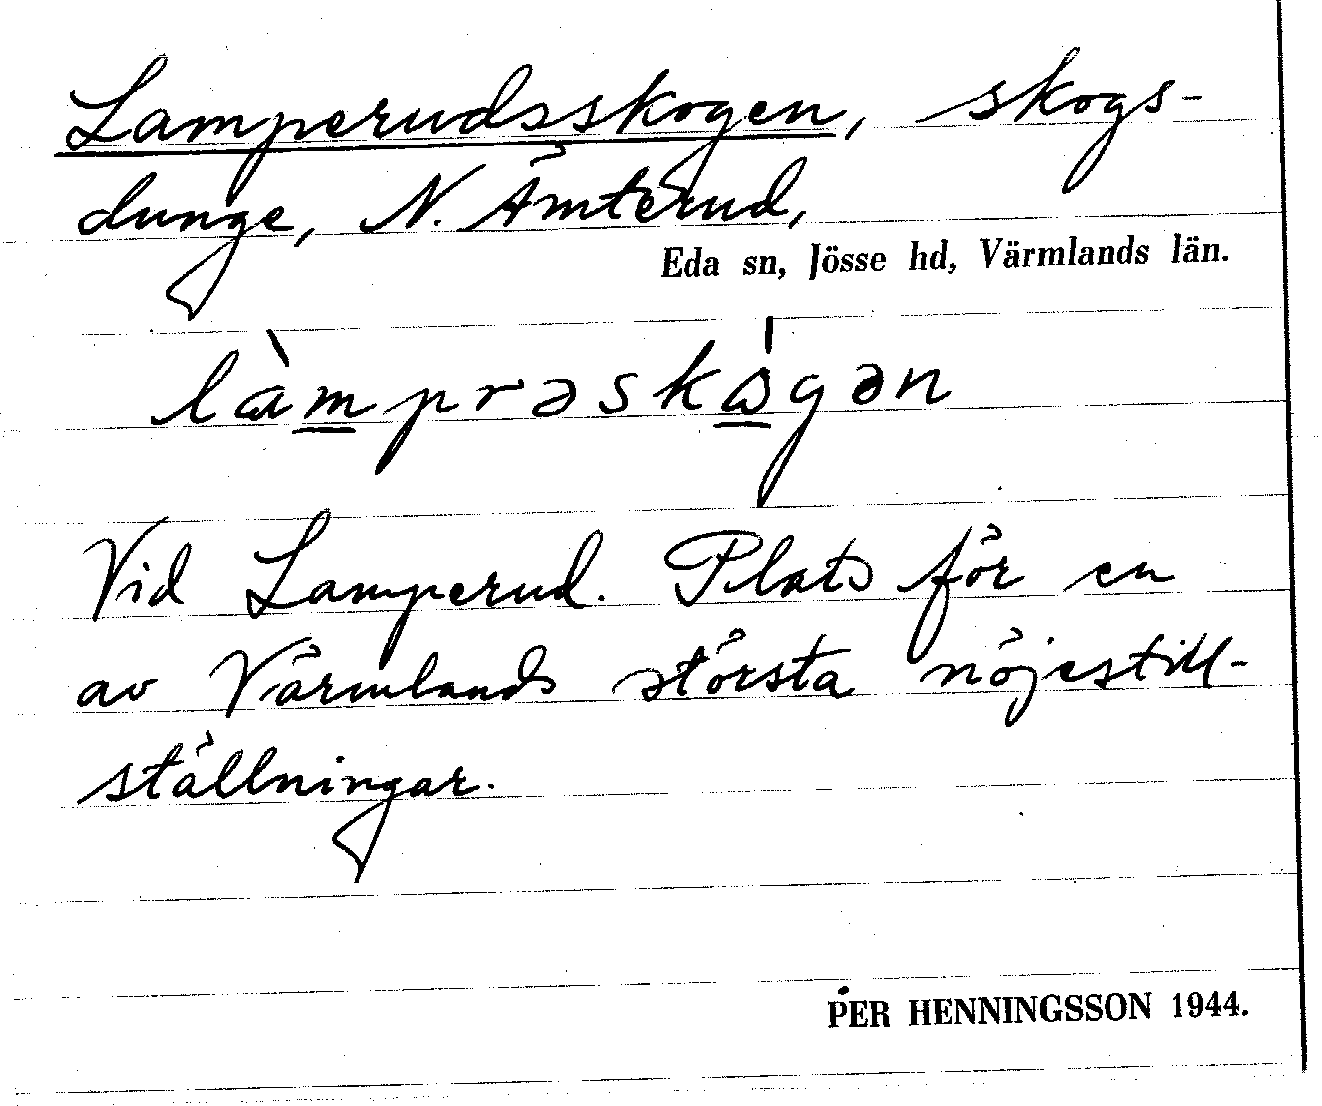 Lamperudsskogen, skogs-
dunge, N. Ämterud,
Eda sn, Jösse hd, Värmlands län.
làmprəskɷ́gən
Vid Lamperud. Plats för en
av Värmlands största nöjestill-
ställningar.
PER HENNINGSSON 1944.